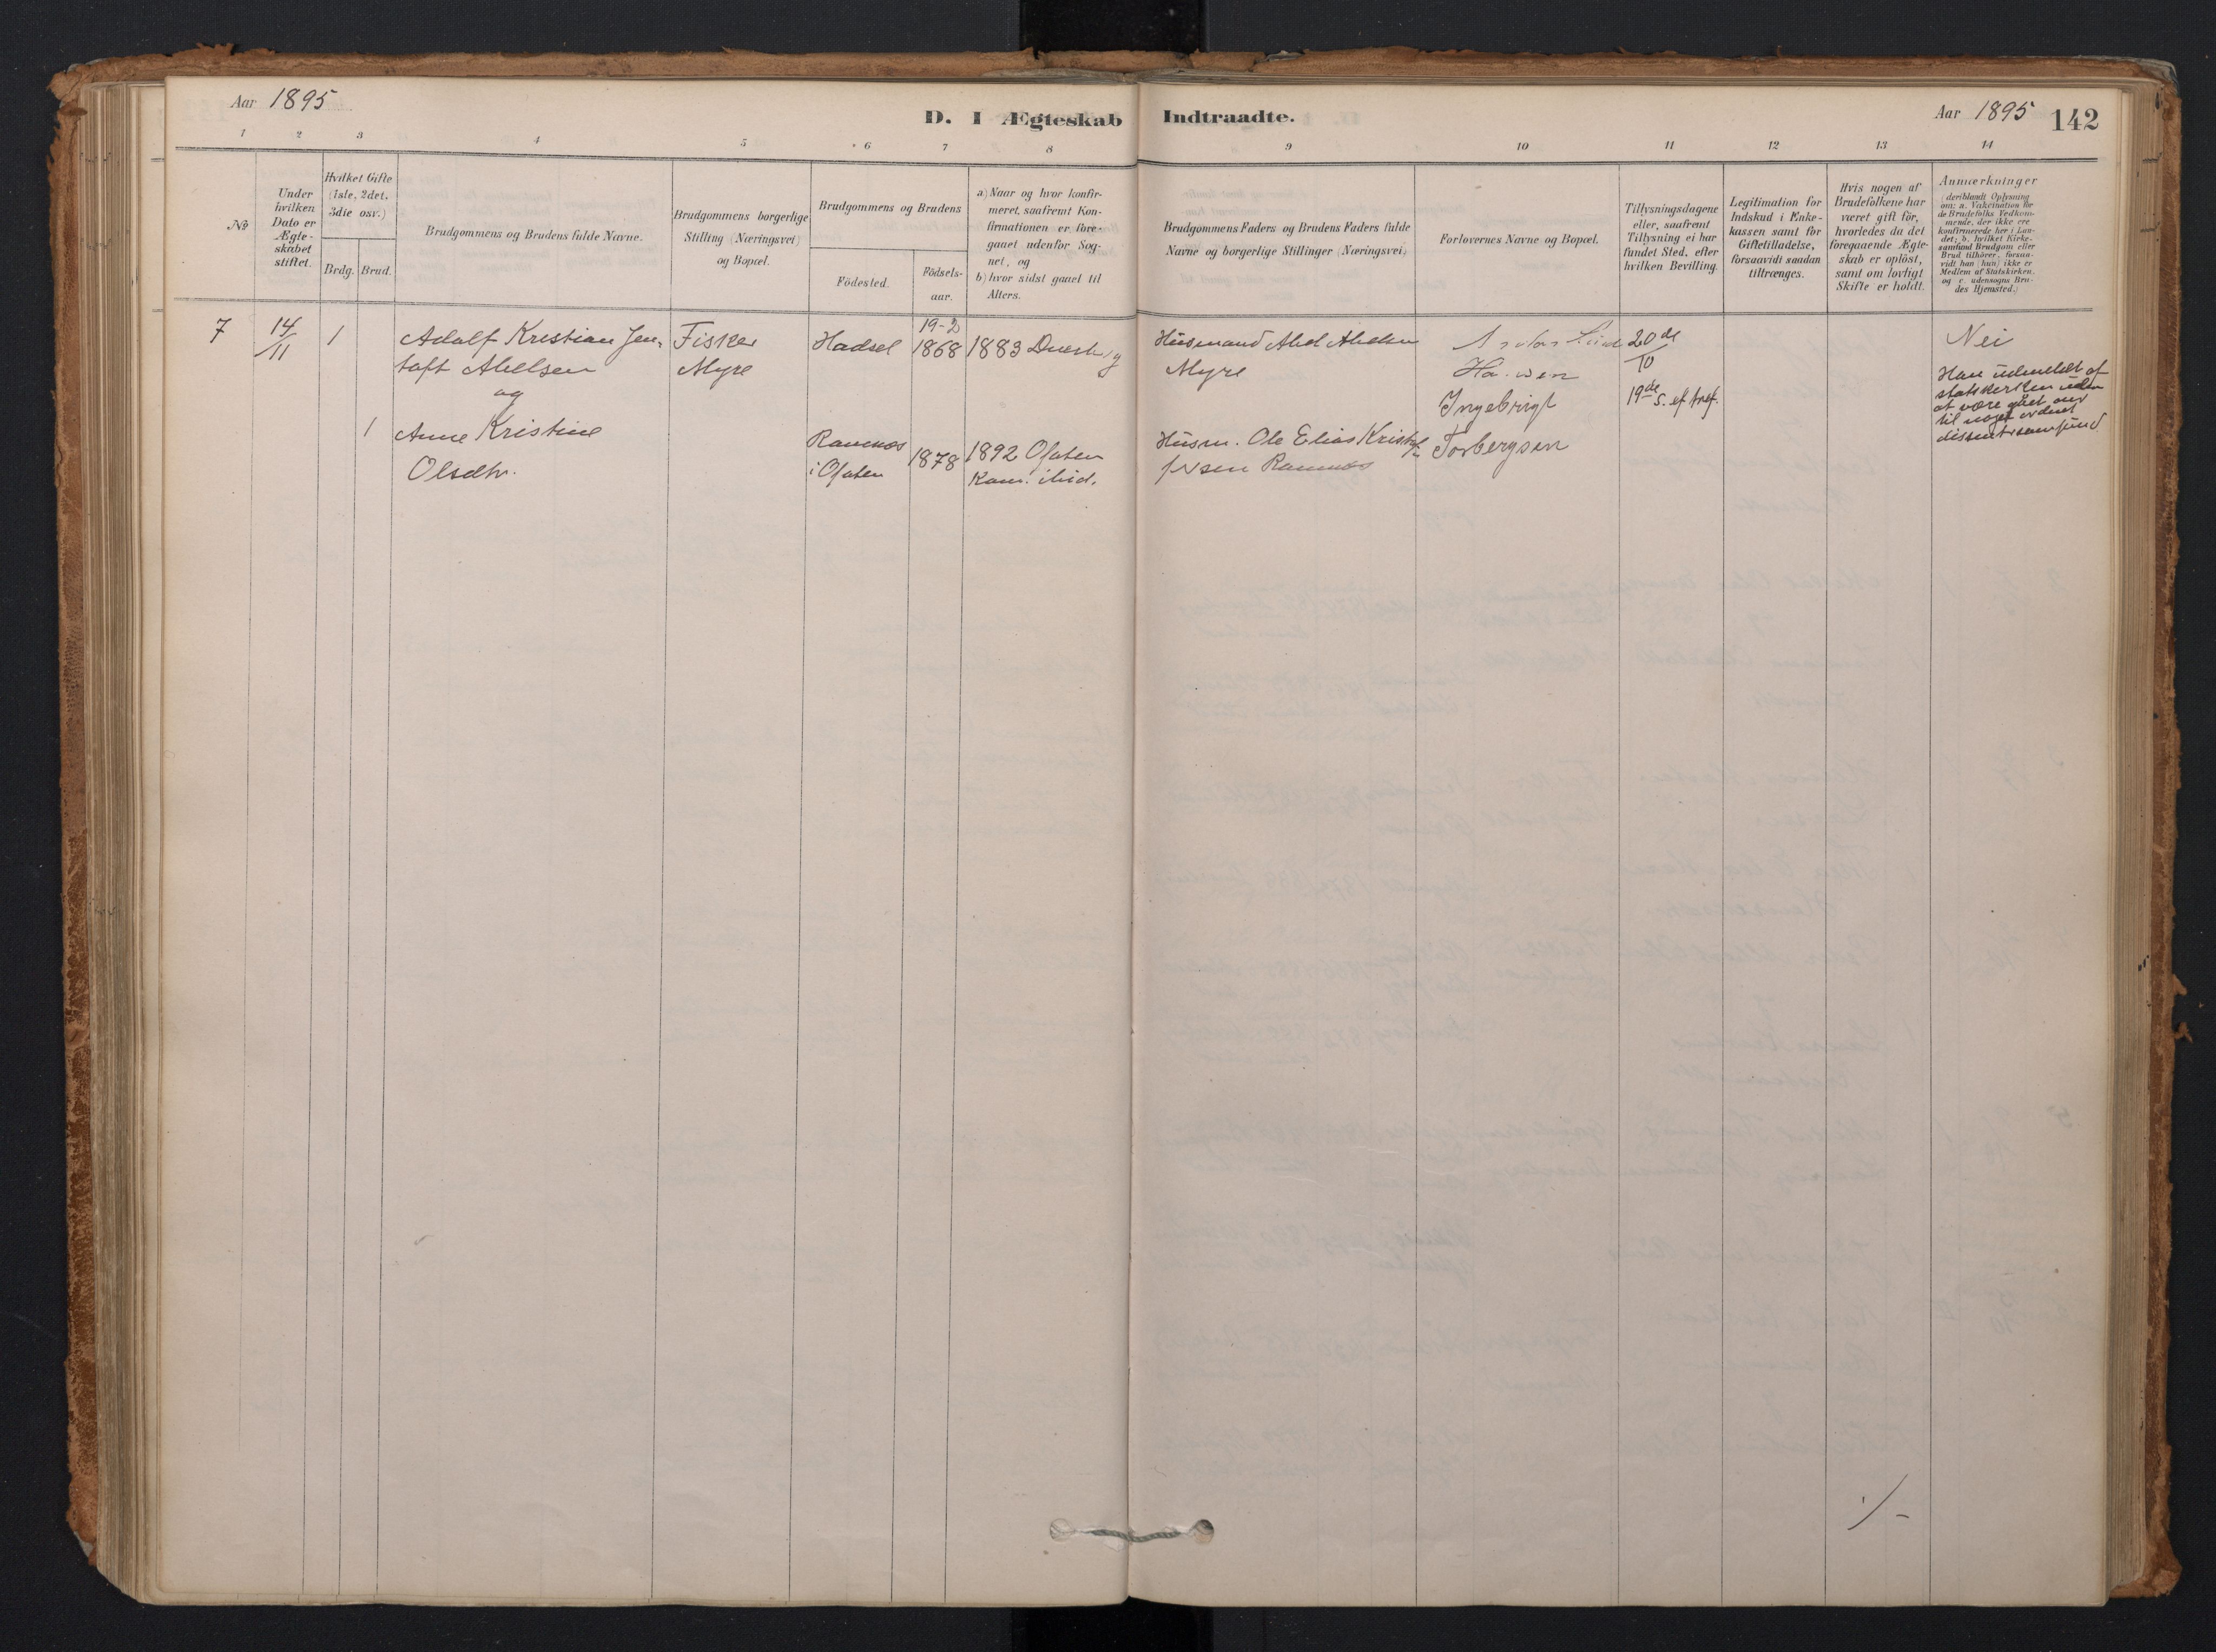 Aar 1895
D. I Ægteskab Indtraadte.
Aar 1895 142
1 2 3 4 5 6 7 8 9 10 11 12 13 14
No
Under hvilken Dato er Ægteskabet stiftet.
Hvilket Gifte (1ste, 2det, 3die osv.)
Brdg. Brud.
Brudgommens og Brudens fulde Navne.
Brudgommens borgerlige Stilling (Næringsvei) og Bopæl.
Brudgommens og Brudens
Födested.
Födselsaar.
a) Naar og hvor konfirmeret, saafremt Konfirmationen er foregaaet udenfor Sognet, og
b) hvor sidst gaaet til Alters.
Brudgommens Faders og Brudens Faders fulde Navne og borgerlige Stillinger (Næringsvei)
Forlovernes Navne og Bopæl.
Tillysningsdagene eller, saafremt Tillysning ei har fundet Sted, efter hvilken Bevilling.
Legitimation for Indskud i Enkekassen samt for Giftetilladelse, forsaavidt saadan tiltrænges.
Hvis nogen af Brudefolkene har været gift för, hvorledes da det foregaaende Ægteskab er oplöst, samt om lovligt Skifte er holdt.
Anmærkninger
(deriblandt Oplysning om: a. Vakcination for de Brudefolks Vedkommende, der ikke ere konfirmerede her i Landet; b. hvilket Kirkesamfund Brudgom eller Brud tilhörer, forsaavidt han (hun) ikke er Medlem af Statskirken, og c. udensogns Brudes Hjemsted.)
7 14/11 1 Adolf Kristian Jentoft Abelsen
og
Fisker
Myre
Hadsel
19-2
1868
1883
Husmand Abel Abelsen
Myre
Ingebrigt
Torbergsen
20de
10
19de s. ef. tref.
Nei
Han udmeldt af
statskirken uden
at være gået over
til noget ordnet
dissentersamfund
1 Anne Kristine
Olsdtr.
Ramnes
i Ofoten
1878
1892 Ofoten
Kom. ibid.
Husm. Ole Elias Kristoffersen Ramnes